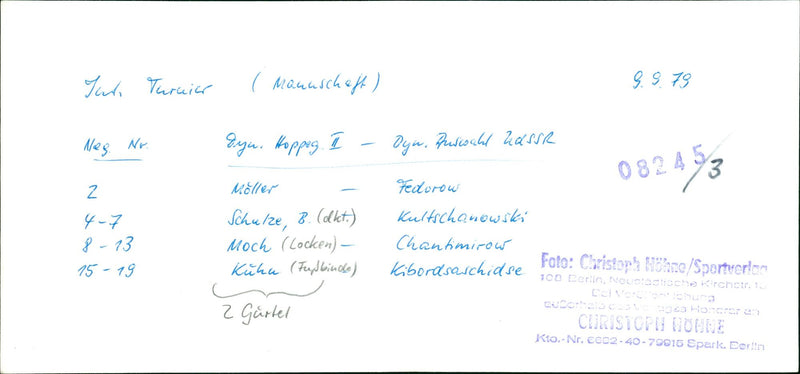 Int. Turnier (Mannschaft) 9.9.79
Neg. Nr. Dyn. Hoppeg. II – Dyn. Auswahl UdSSR
08245/3
2 Möller – Fedorow
4-7 Schulze, B. (dkl.) Kultschanowski
8-13 Moch (Locken) – Chantimirow
15-19 Kühn (Fußbinde) Kibordsaschidse
2 Gürtel
Foto: Christoph Höhne/Sportverlag
108 Berlin, Neustädtische Kirchstr. 15
Bei Veröffentlichung
außerhalb des Verlages Honorar an
CHRISTOPH HÖHNE
Kto.-Nr. 6652-40-79915 Spark. Berlin